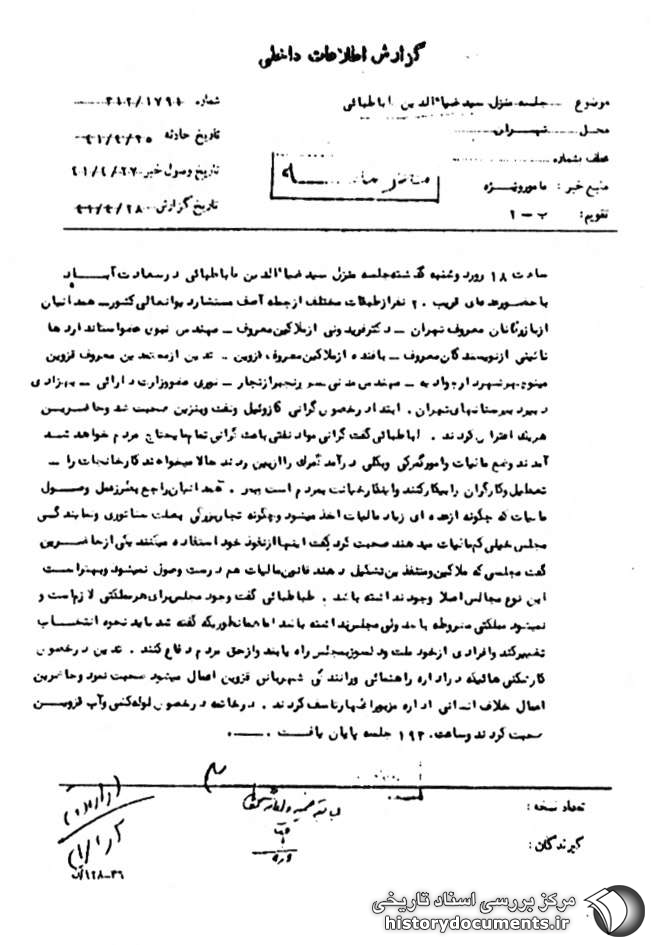 گزارش اطلاعات داخلی
موضوع جلسه منزل سید ضیاءالدین طباطبائی
شماره ۳۱۲/۱۷۹۱
محل تهران
تاریخ حادثه
عطف بشماره
تاریخ وصول خبر
منبع خبر : مامور ویژه
تاریخ گزارش
تقویم: ب - ۲
ساعت ۱۸ روز دوشنبه گذشته جلسه منزل سید ضیاءالدین طباطبائی در سعادت آباد
با حضور عده‌ای قریب ۲۰ نفر از طبقات مختلف از جمله آصف مستشار دیوانعالی کشور – همدانیان
از بازرگانان معروف تهران – دکتر فریدونی از ملاکین معروف – مهندس نبوی عضو استانداردها
نائینی از نویسندگان معروف – بافنده از ملاکین معروف قزوین – تدین از معتمدین معروف قزوین
مهندس مدنی رنجبر از تجار – نوری عضو وزارت دارائی – بهزادی
دبیر دبیرستانهای تهران . ابتدا در خصوص گرانی گازوئیل و نفت و بنزین صحبت شد و حاضرین
هریک اعتراض کردند . طباطبائی گفت گرانی مواد نفتی باعث گرانی تمام مایحتاج مردم خواهد شد
آمدند وضع مالیات و امور گمرکی و بکلی درآمد گمرک را از بین بردند حالا میخواهند کارخانجات را –
تعطیل و کارگران را بیکار کنند و اینکار خیانت بمردم است . همدانیان راجع بطرز عمل وصول
مالیات که چگونه از عده ای زیاد مالیات اخذ میشود و چگونه تجار بزرگی بعلت سناتوری و نمایندگی
مجلس خیلی کم مالیات میدهند صحبت کرد گفت اینها از نفوذ خود استفاده میکنند یکی از حاضرین
گفت مجلسی که ملاکین و متنفذین تشکیل دهند قانون مالیات هم درست وصول نمیشود و بهتر است
این نوع مجالس اصلا وجود نداشته باشد . طباطبائی گفت وجود مجلس برای هر مملکتی لازم است و
نمیشود مملکتی مشروطه باشد ولی مجلس نداشته باشد اما همانطوریکه گفته شد باید نحوه انتخاب
تغییر کند و افرادی از خود ملت و دلسوز بمجلس راه یابند و از حق مردم دفاع کنند . تدین در خصوص
کارشکنی هائیکه در اداره راهنمائی و رانندگی شهربانی قزوین اعمال میشود صحبت نمود و حاضرین
اعمال خلاف اداره مزبور اظهار تاسف کردند . در خاتمه در خصوص لوله کشی و آب قزوین
صحبت کردند و ساعت ۱۹۳۰ جلسه پایان یافت .
تعداد نسخه :
گیرندگان :
مرکز بررسی اسناد تاریخی
historydocuments.ir